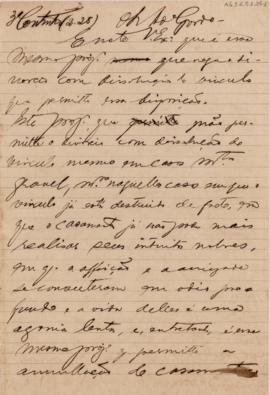 3º Centenº (4-28) Ao Adº Gordo-
E note V. Ex.ª que é esse
mesmo proj. que nega o di-
vorcio com dissolução do vinculo
que permitte essa
Este proj. que não per-
mitte o divorcio com dissolução do
vinculo, mesmo em caso mto
grave, mmo naquelle caso em que o
vinculo já está destruido de facto, em
que o casamto já não pode mais
realisar seus intuitos nobres,
em q. a affeição e a amizade
se converteram em odio pro-
fundo e a vida delles é uma
agonia lenta, e, entretanto, é esse
mesmo proj. q. permitte a
annullação do casamento